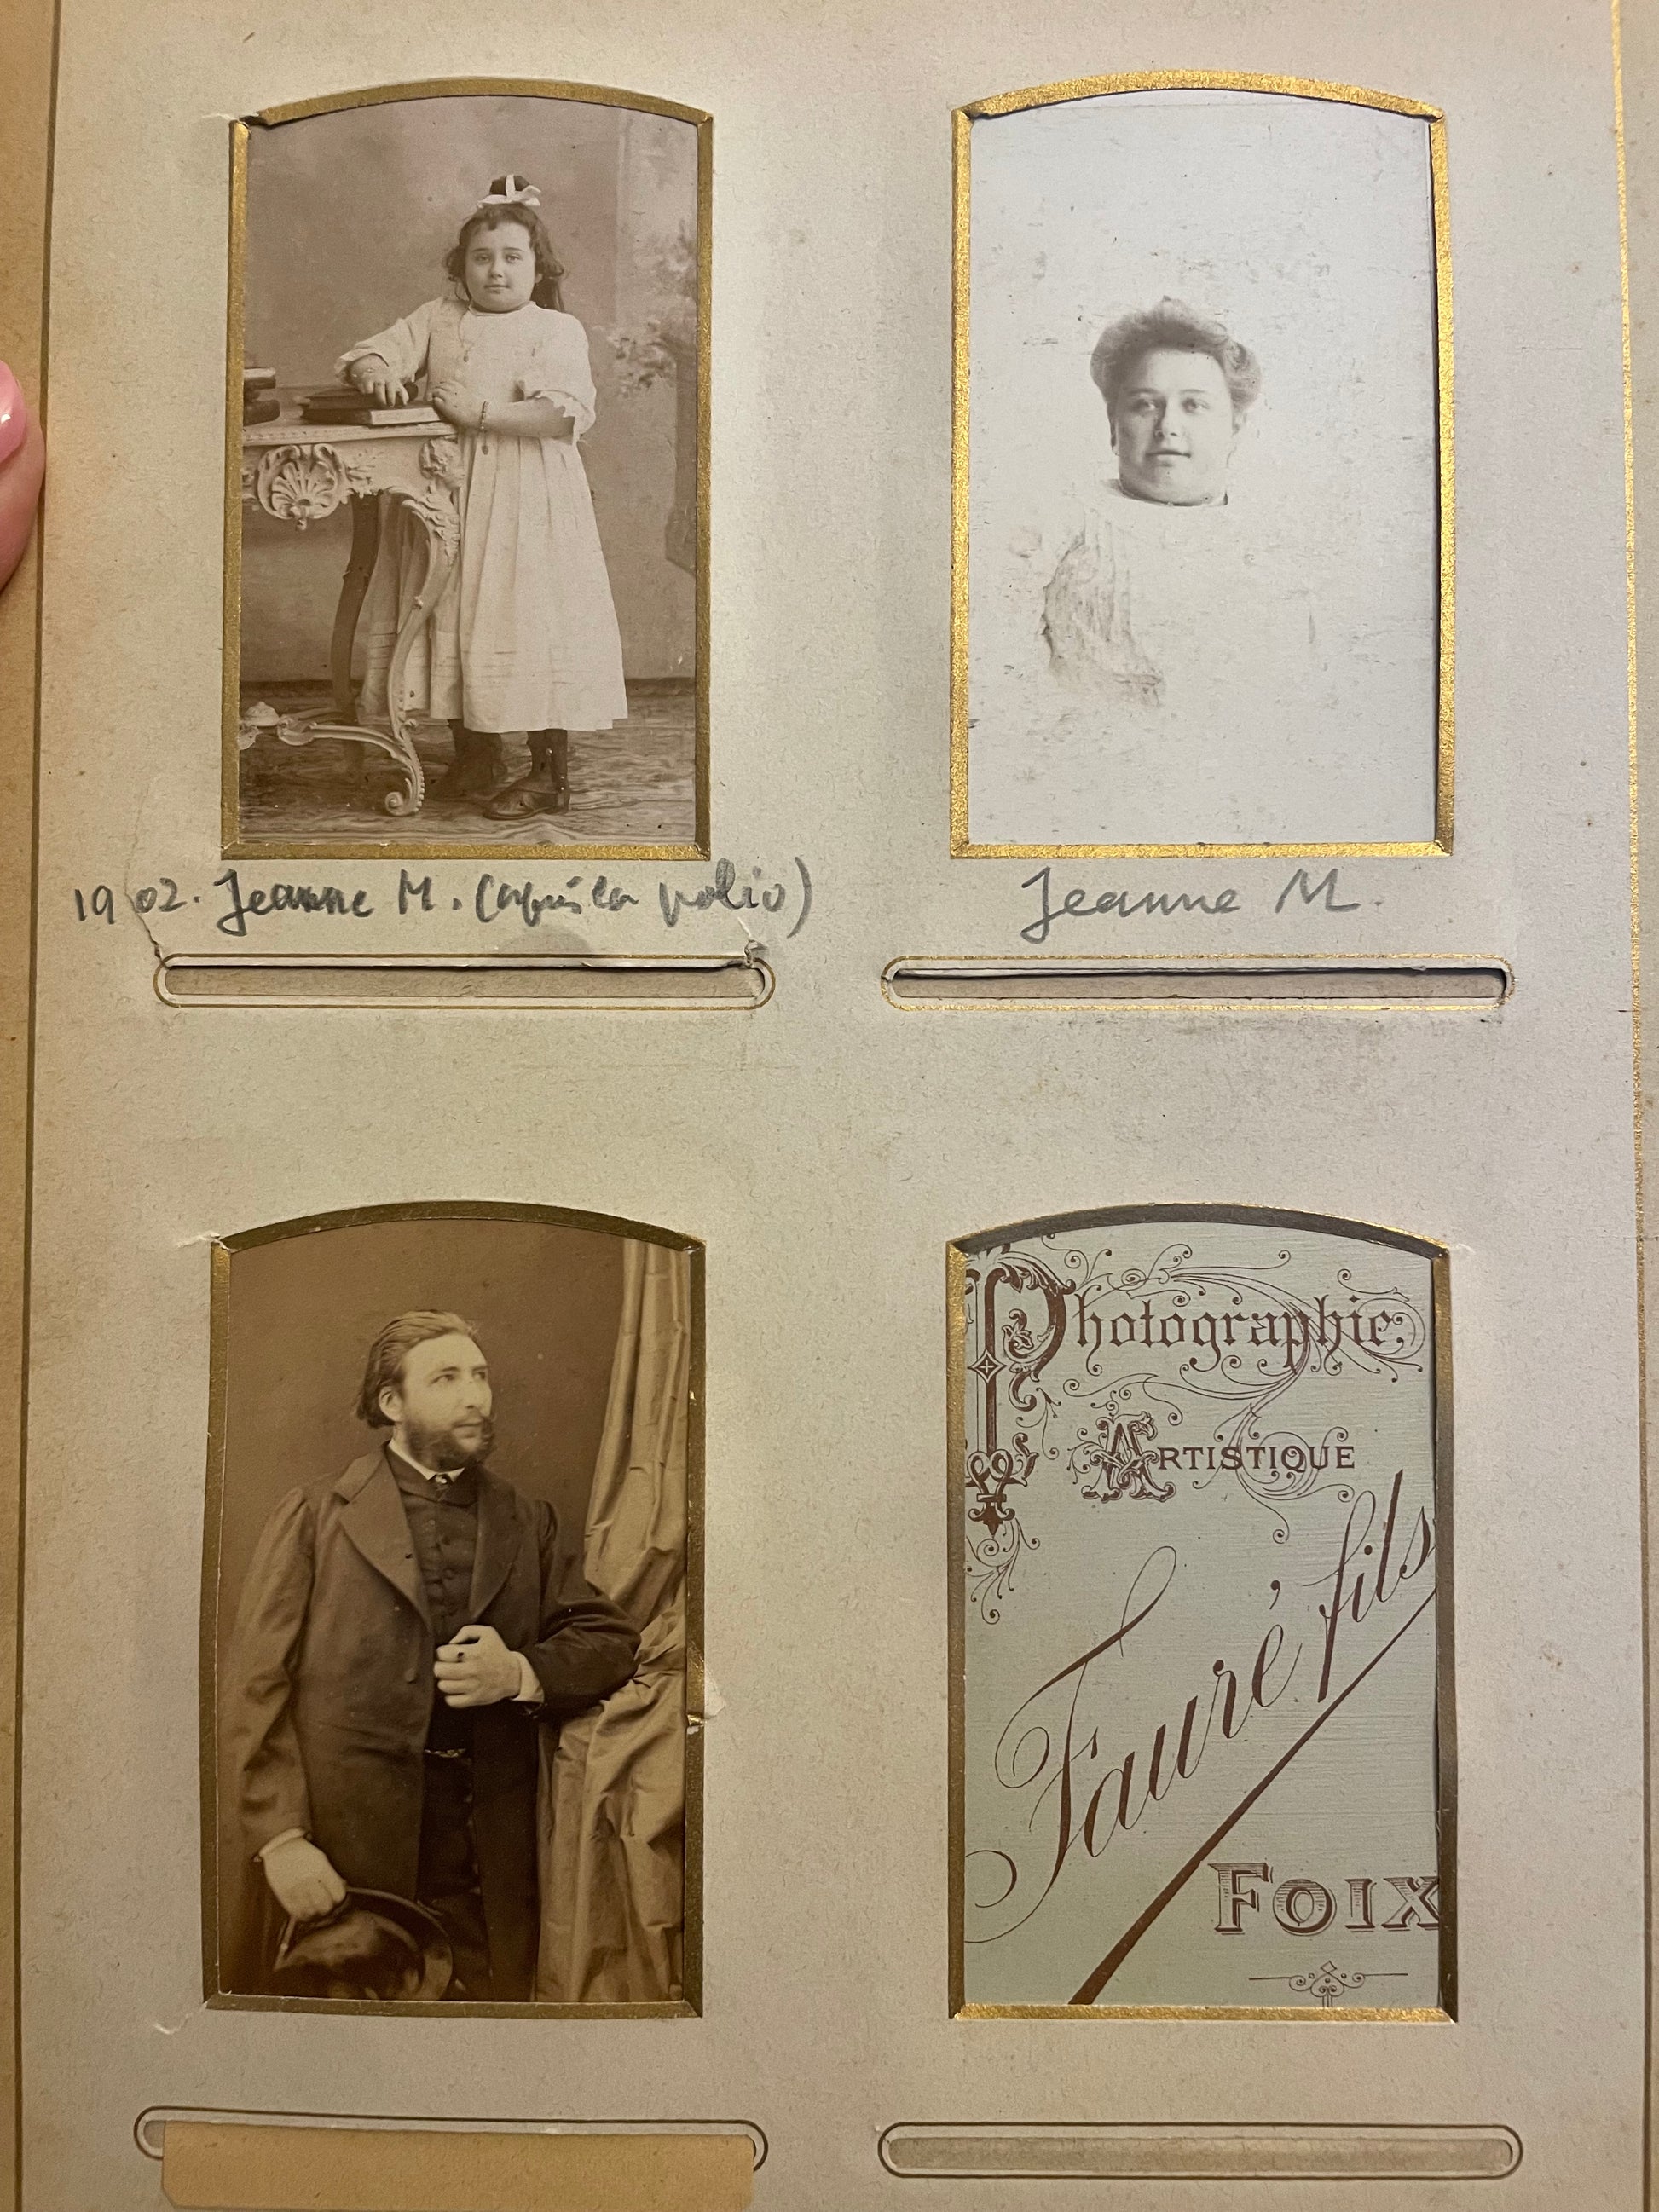 1902. Jeanne M. (après la polio)
Jeanne M.
Photographie
Artistique
Fauré fils
Foix